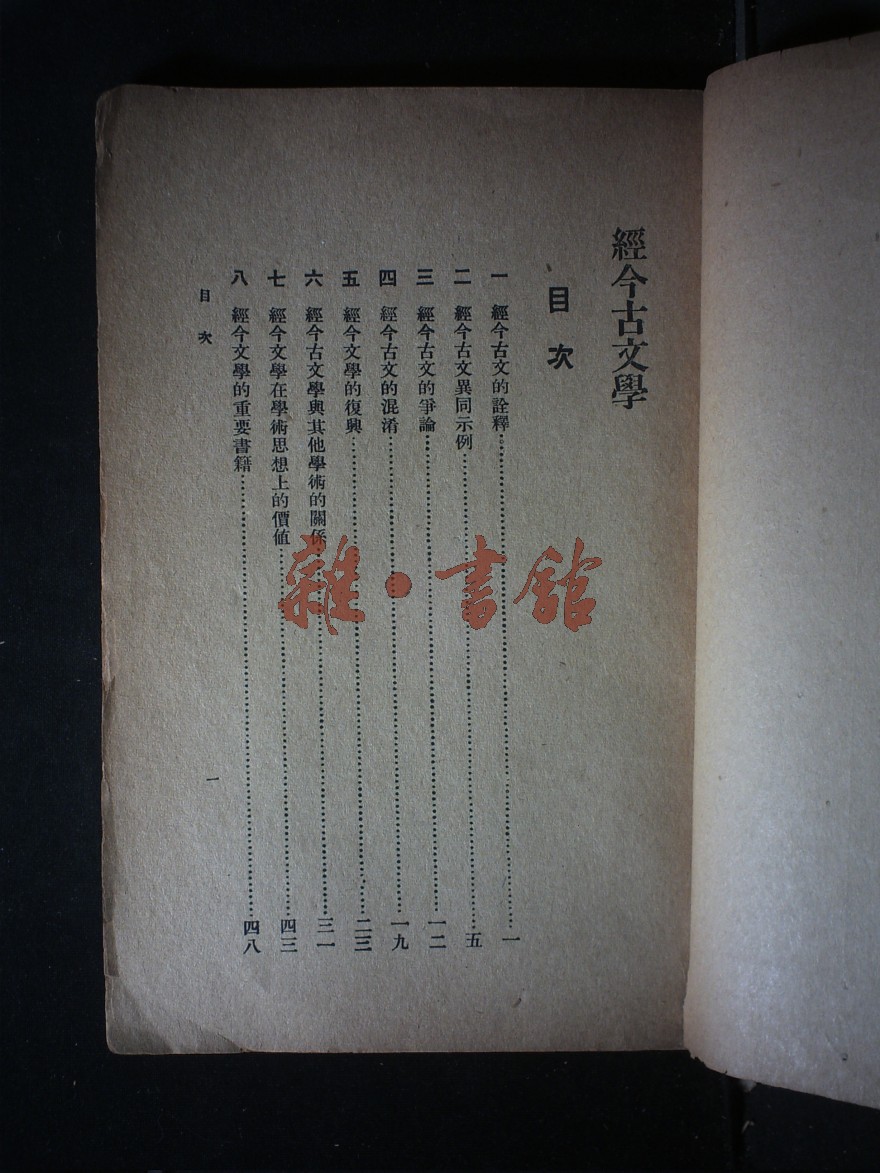 經今古文學
目次
一 經今古文的詮釋……一
二 經今古文異同示例……五
三 經今古文的爭論……一二
四 經今古文的混淆……一九
五 經今文學的復興……二三
六 經今古文學與其他學術的關係……三一
七 經今文學在學術思想上的價值……四三
八 經今文學的重要書籍……四八
目次 一
雜·書館